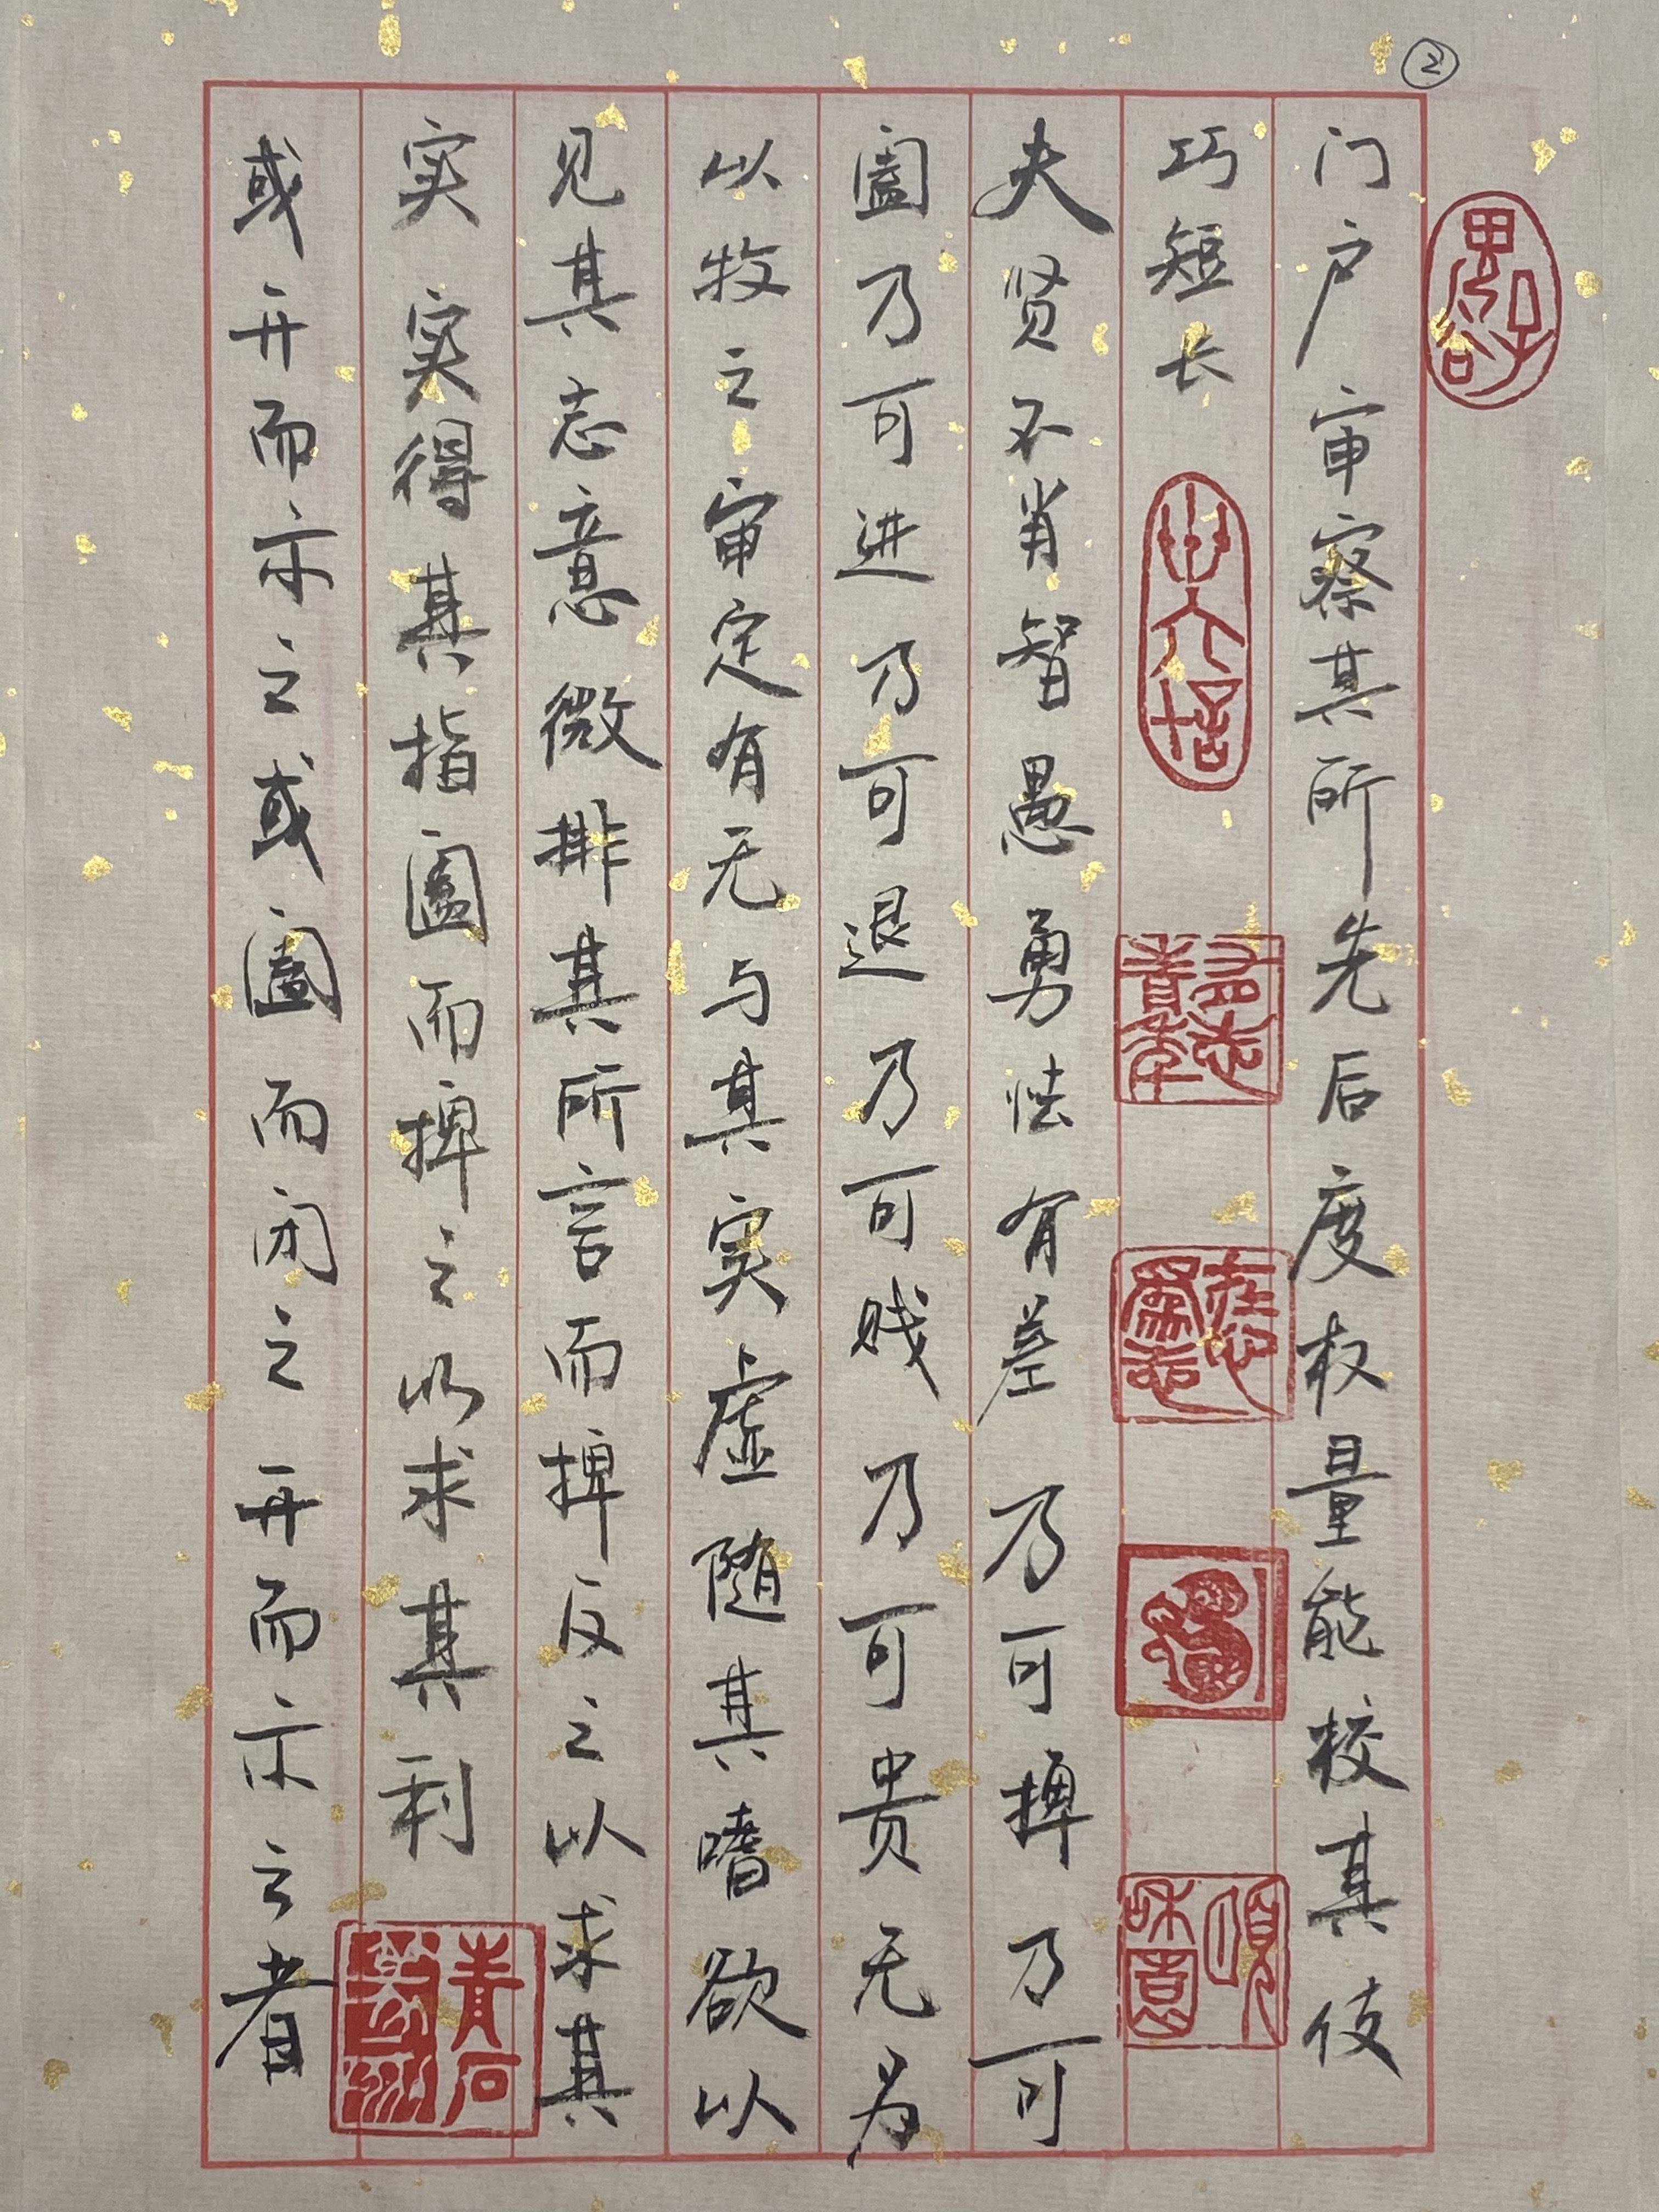 ②
鬼谷子
门户审察其所先后度权量能校其伎
巧短长
夫贤不肖智愚勇怯有差乃可捭乃可
阖乃可进乃可退乃可贱乃可贵无为
以牧之审定有无与其实虚随其嗜欲以
见其志意微排其所言而捭反之以求其
实实得其指阖而捭之以求其利
或开而示之或阖而闭之开而示之者
青石